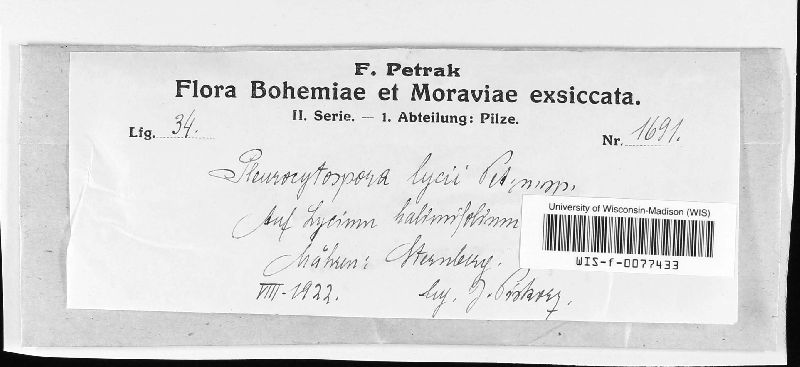 F. Petrak
Flora Bohemiae et Moraviae exsiccata.
II. Serie. — 1. Abteilung: Pilze.
Lfg. 34.
Nr. 1691.
Pleurocytospora lycii Petr.
Auf Lycium halimifolium
Mähren: Sternberg.
VIII-1922.
leg. J. Piskorz.
University of Wisconsin-Madison (WIS)
WIS-f-0077433